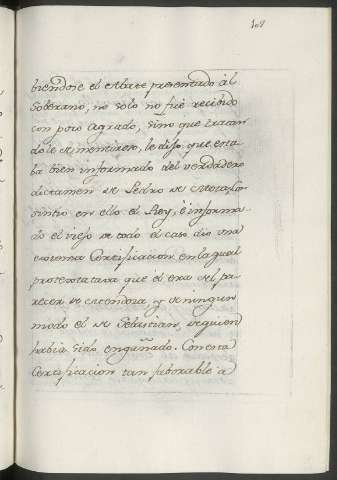 108
biendose el Abate presentado àl
Soberano, no solo no fuè recibido
con poco agrado, sino que tratan
dole de mentiroso, le dijo que esta
ba bien informado del verdadero
dictamen de Pedro de
sintio en ello el Rey, è informa
do el viejo de todo el caso dio una
Certificacion, en la qual
protestava que el era del pa
recer de Mendoza y de ningun
modo el de Sebastian, de quien
habia sido engañado. Con esta
Certificacion tan faborable a